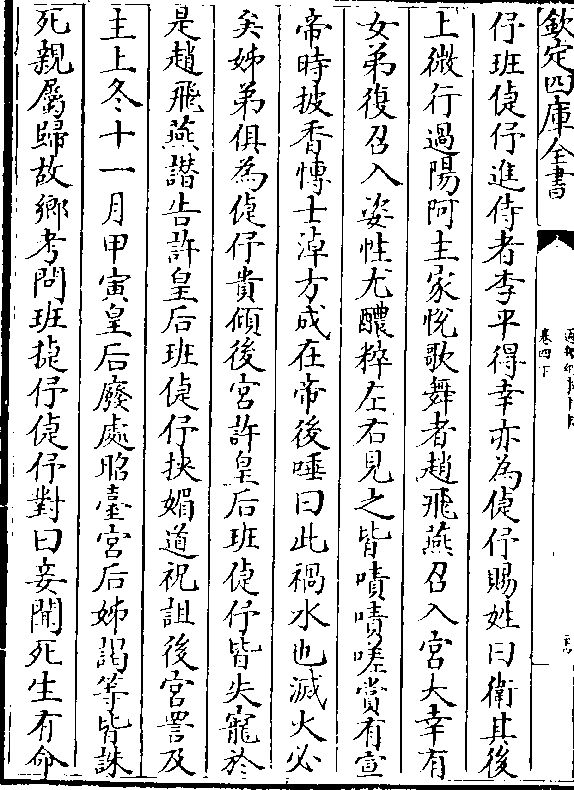 欽定四庫全書
卷四下
伃班倢伃進侍者李平得幸亦為倢伃賜姓曰衛其後
上微行過陽阿主家悅歌舞者趙飛燕召入宫大幸有
女弟復召入姿性尤醲粹左右見之皆嘖嘖嗟賞有宣
帝時披香愽士淖方成在帝後唾曰此禍水也滅火必
矣姊弟俱為倢伃貴傾後宫許皇后班倢伃皆失寵於
是趙飛燕譖告許皇后班倢伃挾媚道祝詛後宫詈及
主上冬十一月甲寅皇后廢處昭臺宫后姊謁等皆誅
死親屬歸故鄉考問班㨗伃倢伃對曰妾聞死生有命